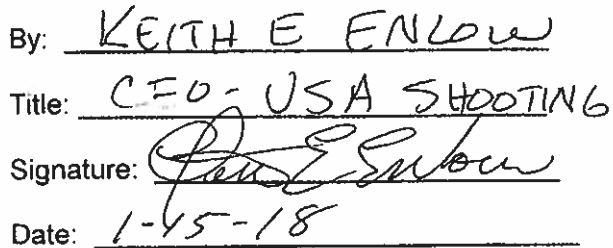 By: KEITH E ENLOW
Title: CEO - USA SHOOTING
Signature: Keith E Enlow
Date: 1-15-18